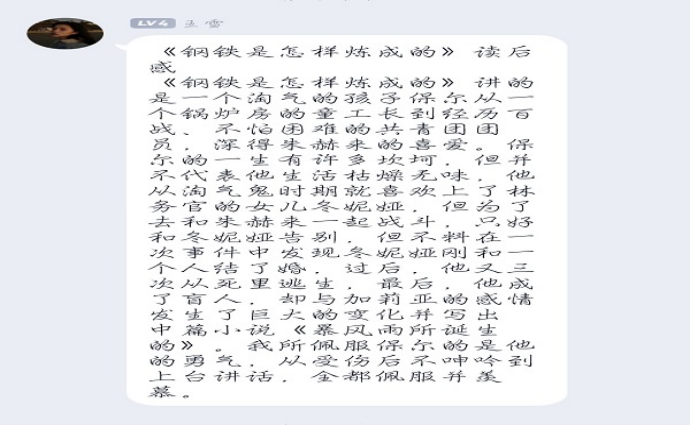 LV4 王雪
《钢铁是怎样炼成的》读后
感
《钢铁是怎样炼成的》讲的
是一个淘气的孩子保尔从一
个锅炉房的童工长到经历百
战、不怕困难的共青团团
员，深得朱赫来的喜爱。保
尔的一生有许多坎坷，但并
不代表他生活枯燥无味，他
从淘气鬼时期就喜欢上了林
务官的女儿冬妮娅，但为了
去和朱赫来一起战斗，只好
和冬妮娅告别，但不料在一
次事件中发现冬妮娅刚和一
个人结了婚，过后，他又三
次从死里逃生，最后，他成
了盲人，却与加莉亚的感情
发生了巨大的变化并写出
中篇小说《暴风雨所诞生
的》。我所佩服保尔的是他
的勇气，从受伤后不呻吟到
上台讲话，全都佩服并羡
慕。